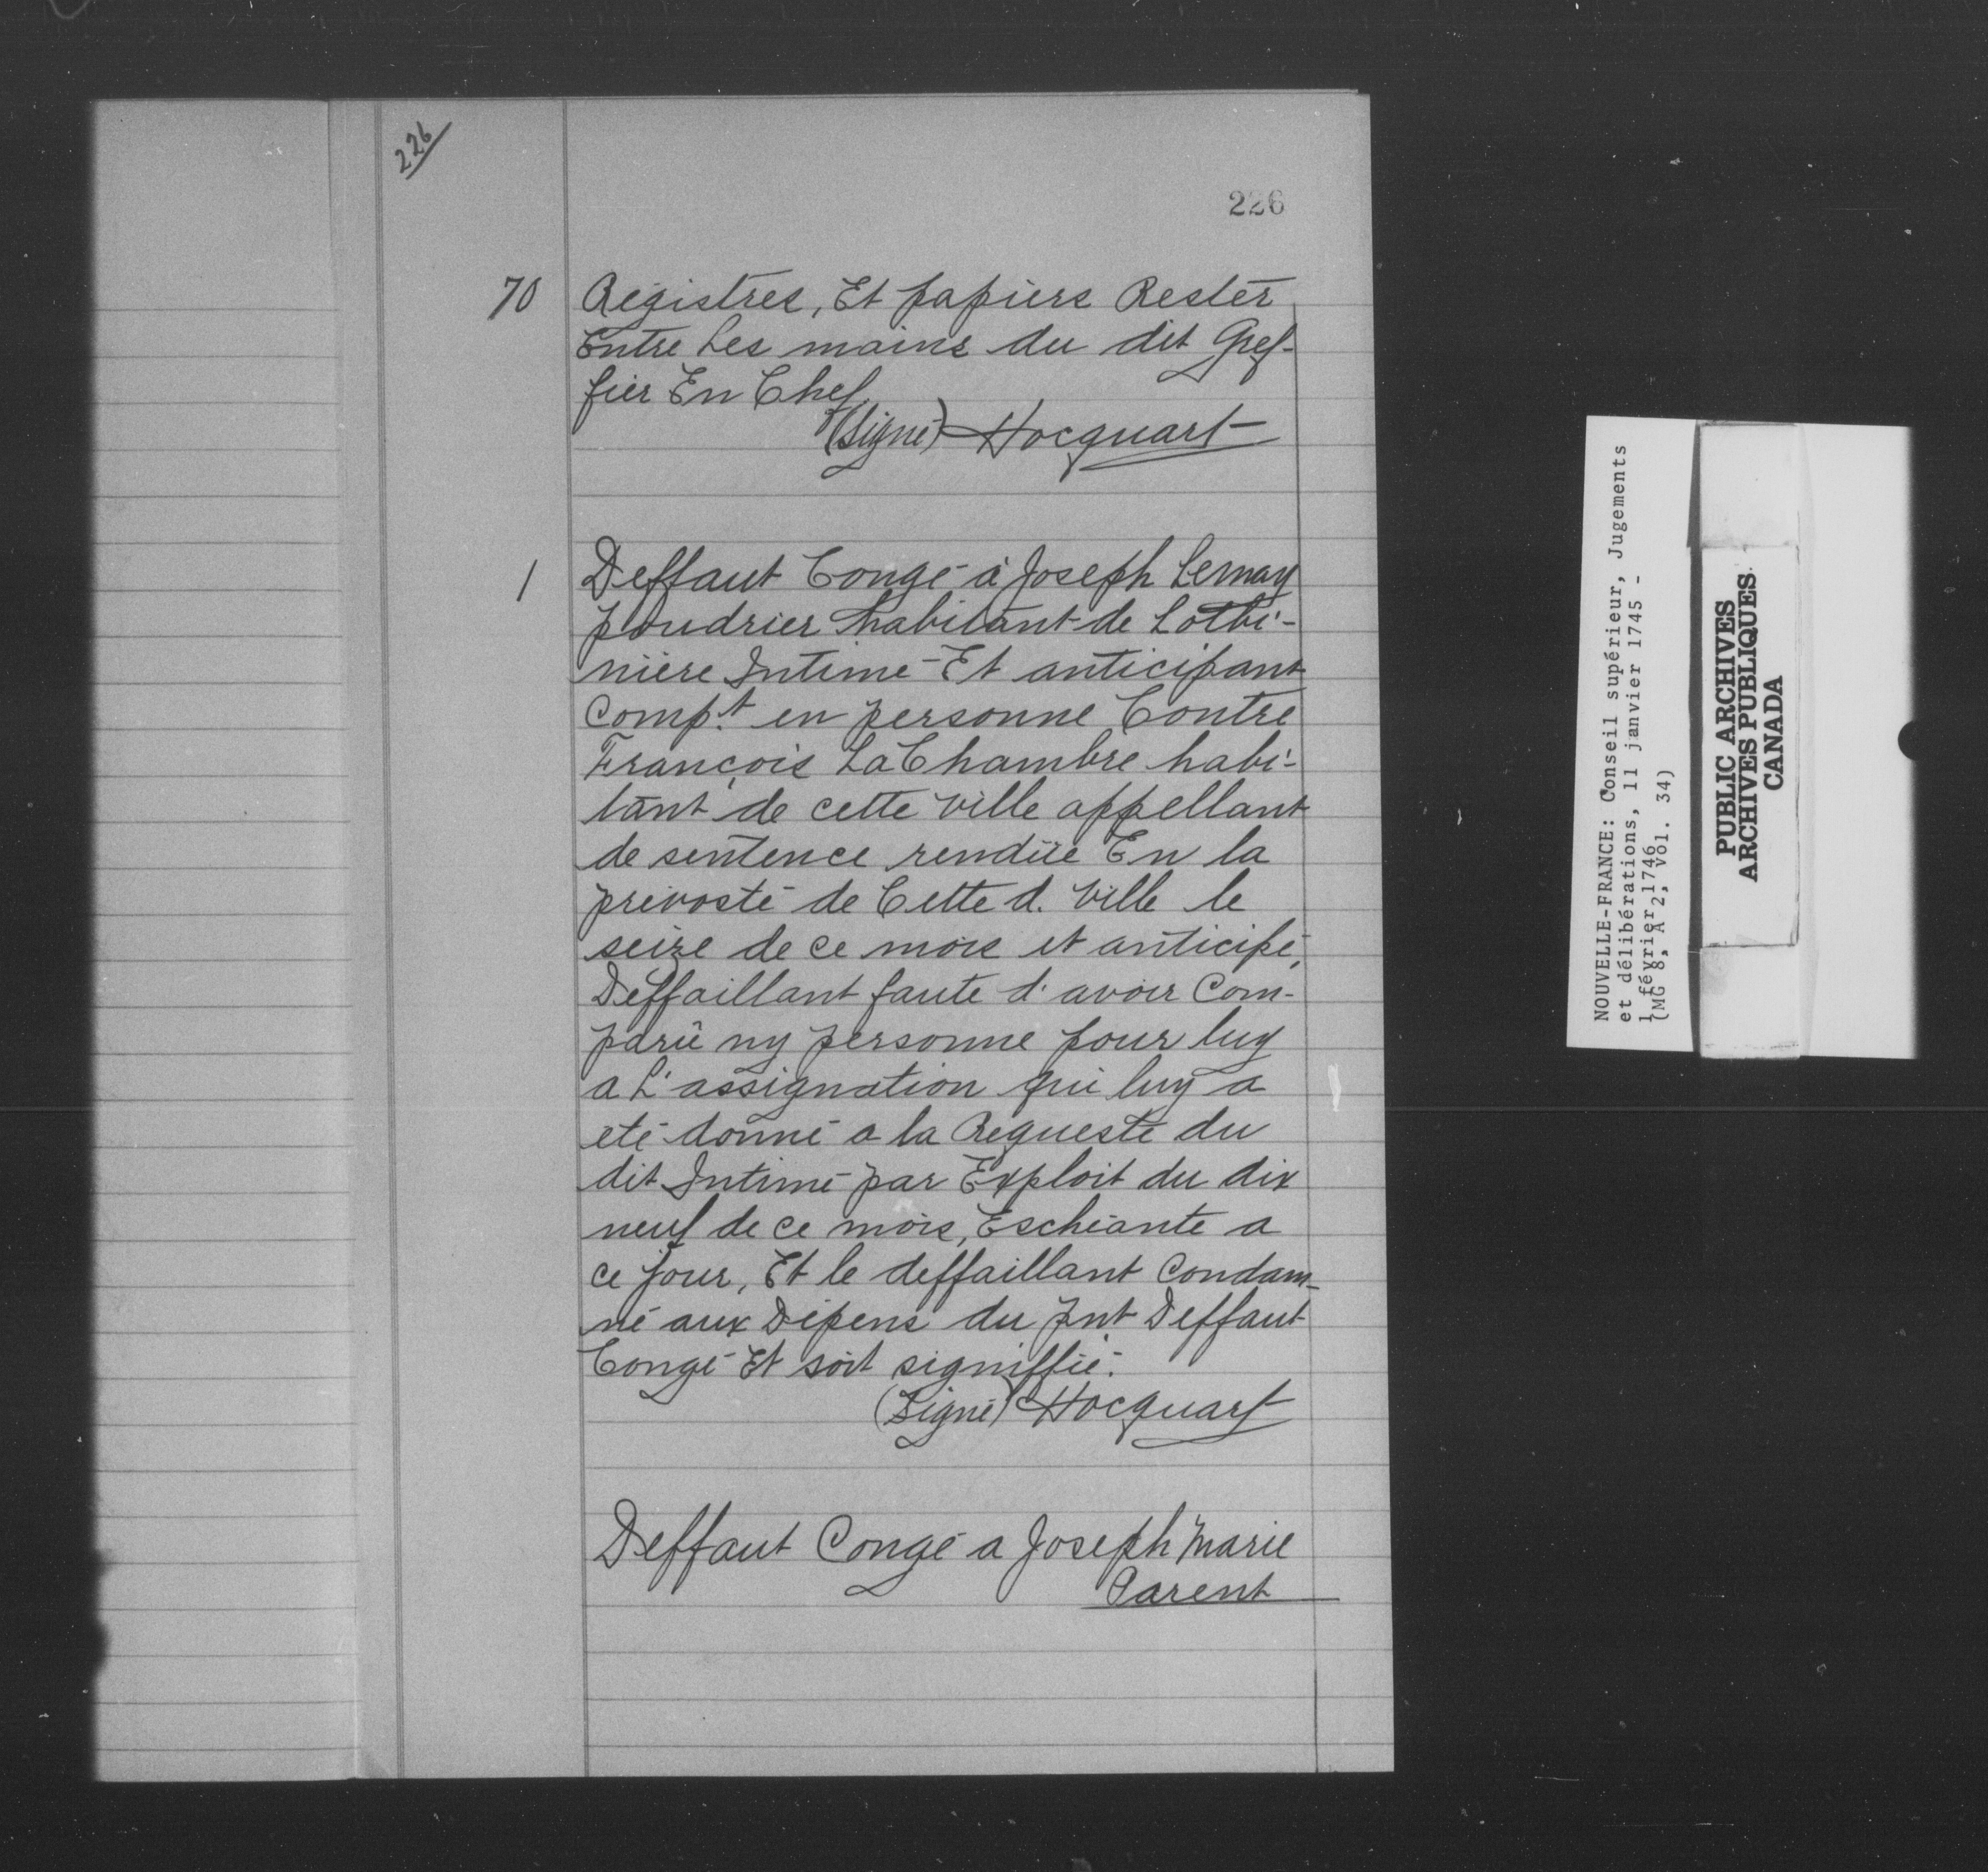 226
226
70 Régistres, Et papiers Rester
Entre Les mains du dit Gref-
fier En Chef
(Signé) Hocquart
1 Deffaut Congé à Joseph Lemay
poudrier habitant de Lotbi-
nière Intimé Et anticipant
Comp.t en personne Contre
François LaChambre habi-
tant de cette ville appellant
de sentence rendüe En la
prévosté de Cette d. Ville le
seize de ce mois et anticipé,
Deffaillant faute d'avoir Com-
parû ny personne pour luy
a L'assignation qui luy a
eté donné a la Requeste du
dit Intimé par Exploit du dix
neuf de ce mois, Eschéante a
ce jour, Et le deffaillant Condam-
né aux Dépens du pnt Deffaut
Congé Et soit signiffié.
(Signé) Hocquart
Deffaut Congé a Joseph Marie
Parent
NOUVELLE-FRANCE: Conseil supérieur, Jugements
et délibérations, 11 janvier 1745 -
1 février 1746
(MG 8, A 2, vol. 34)
PUBLIC ARCHIVES
ARCHIVES PUBLIQUES
CANADA